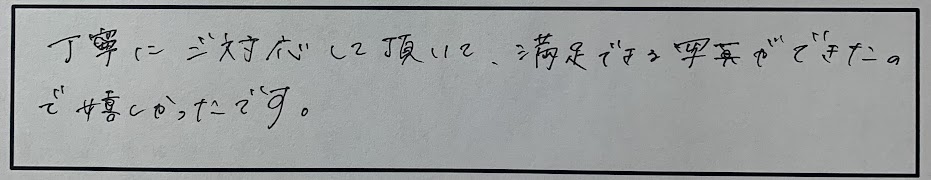 丁寧にご対応して頂いて、満足できる写真ができたの
で嬉しかったです。